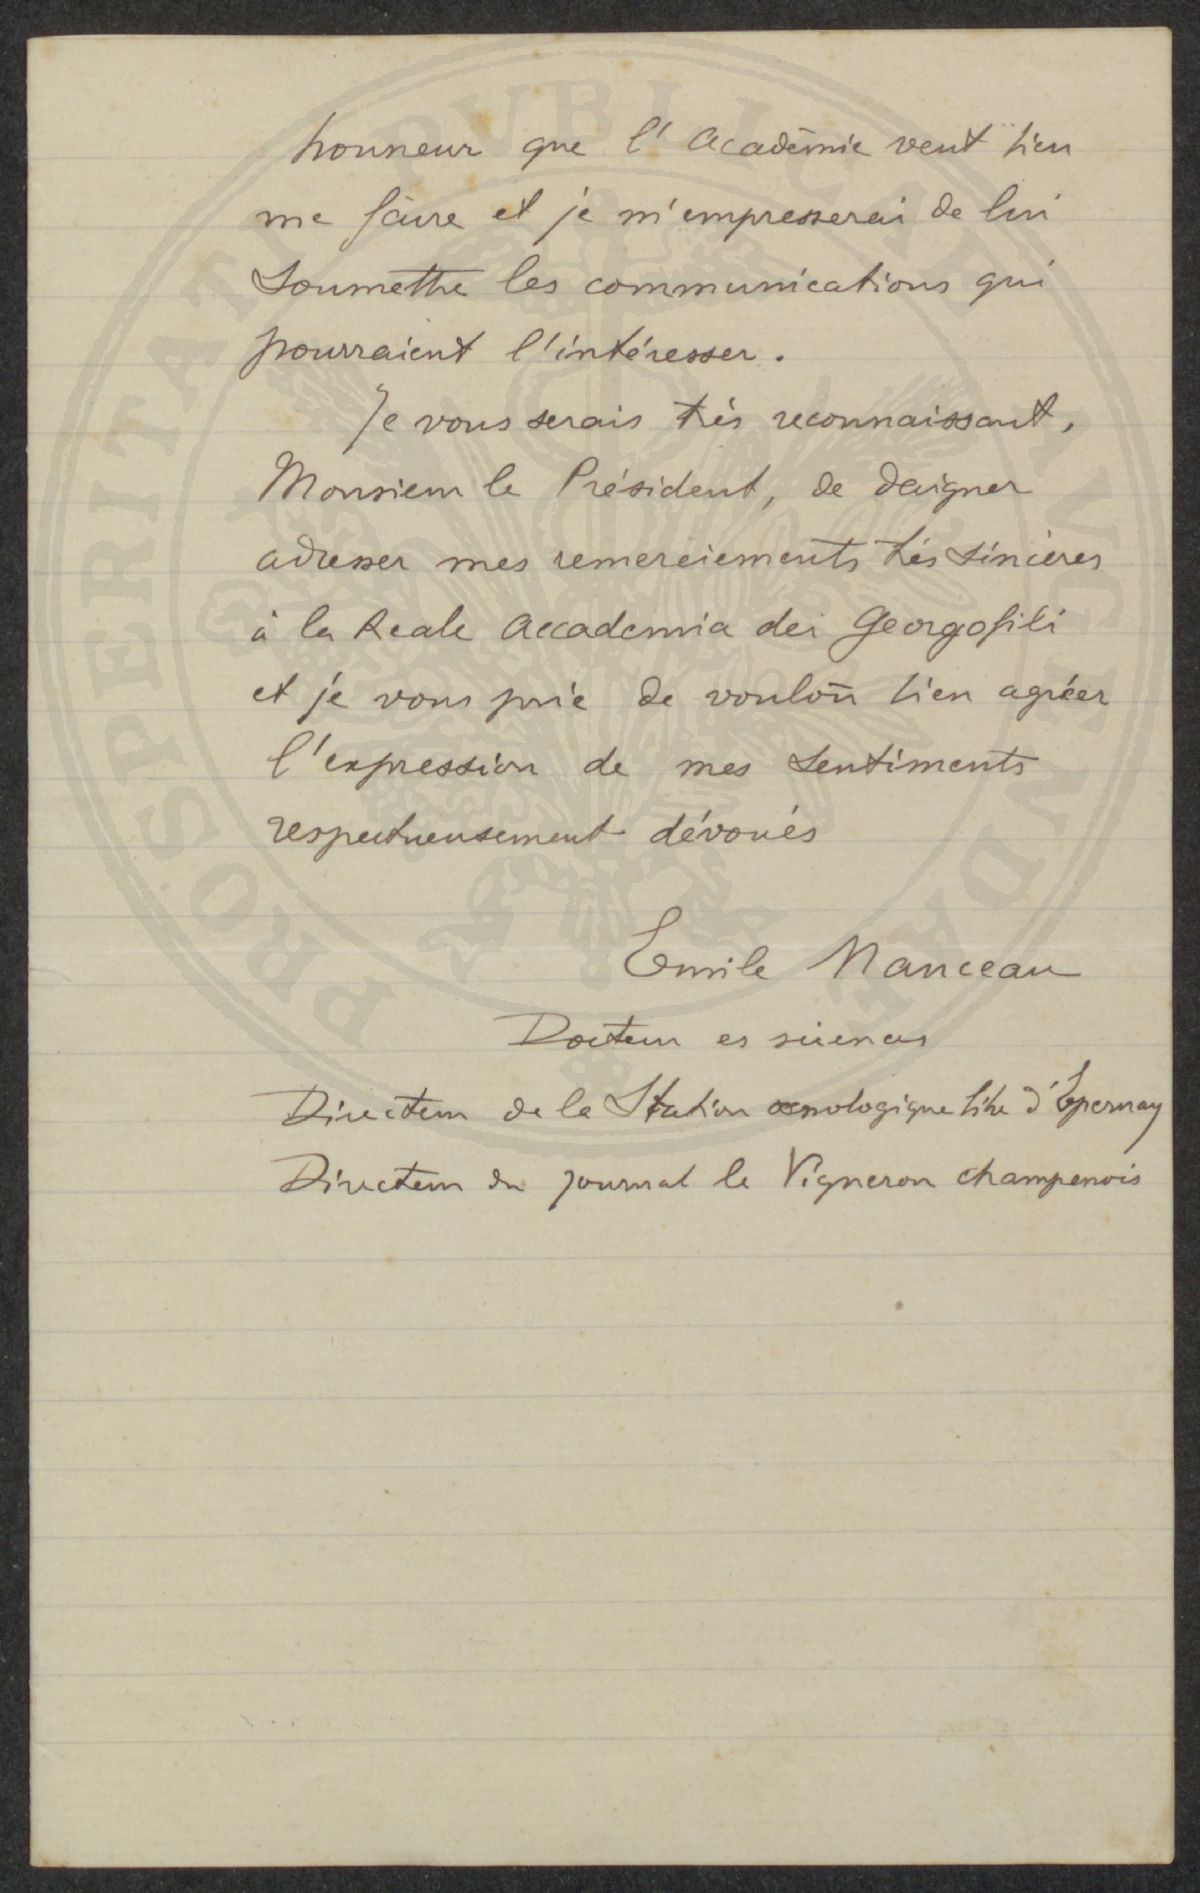 honneur que l'Académie veut bien
me faire et je m'empresserai de lui
soumettre les communications qui
pourraient l'intéresser.
Je vous serais très reconnaissant,
Monsieur le Président, de daigner
adresser mes remerciements très sincères
à la Reale Accademia dei Georgofili
et je vous prie de vouloir bien agréer
l'expression de mes sentiments
respectueusement dévoués
Emile Manceau
Docteur es sciences
Directeur de la Station œnologique libre d'Epernay
Directeur du journal le Vigneron champenois
PROSPERITATI PUBLICAE AUGENDAE